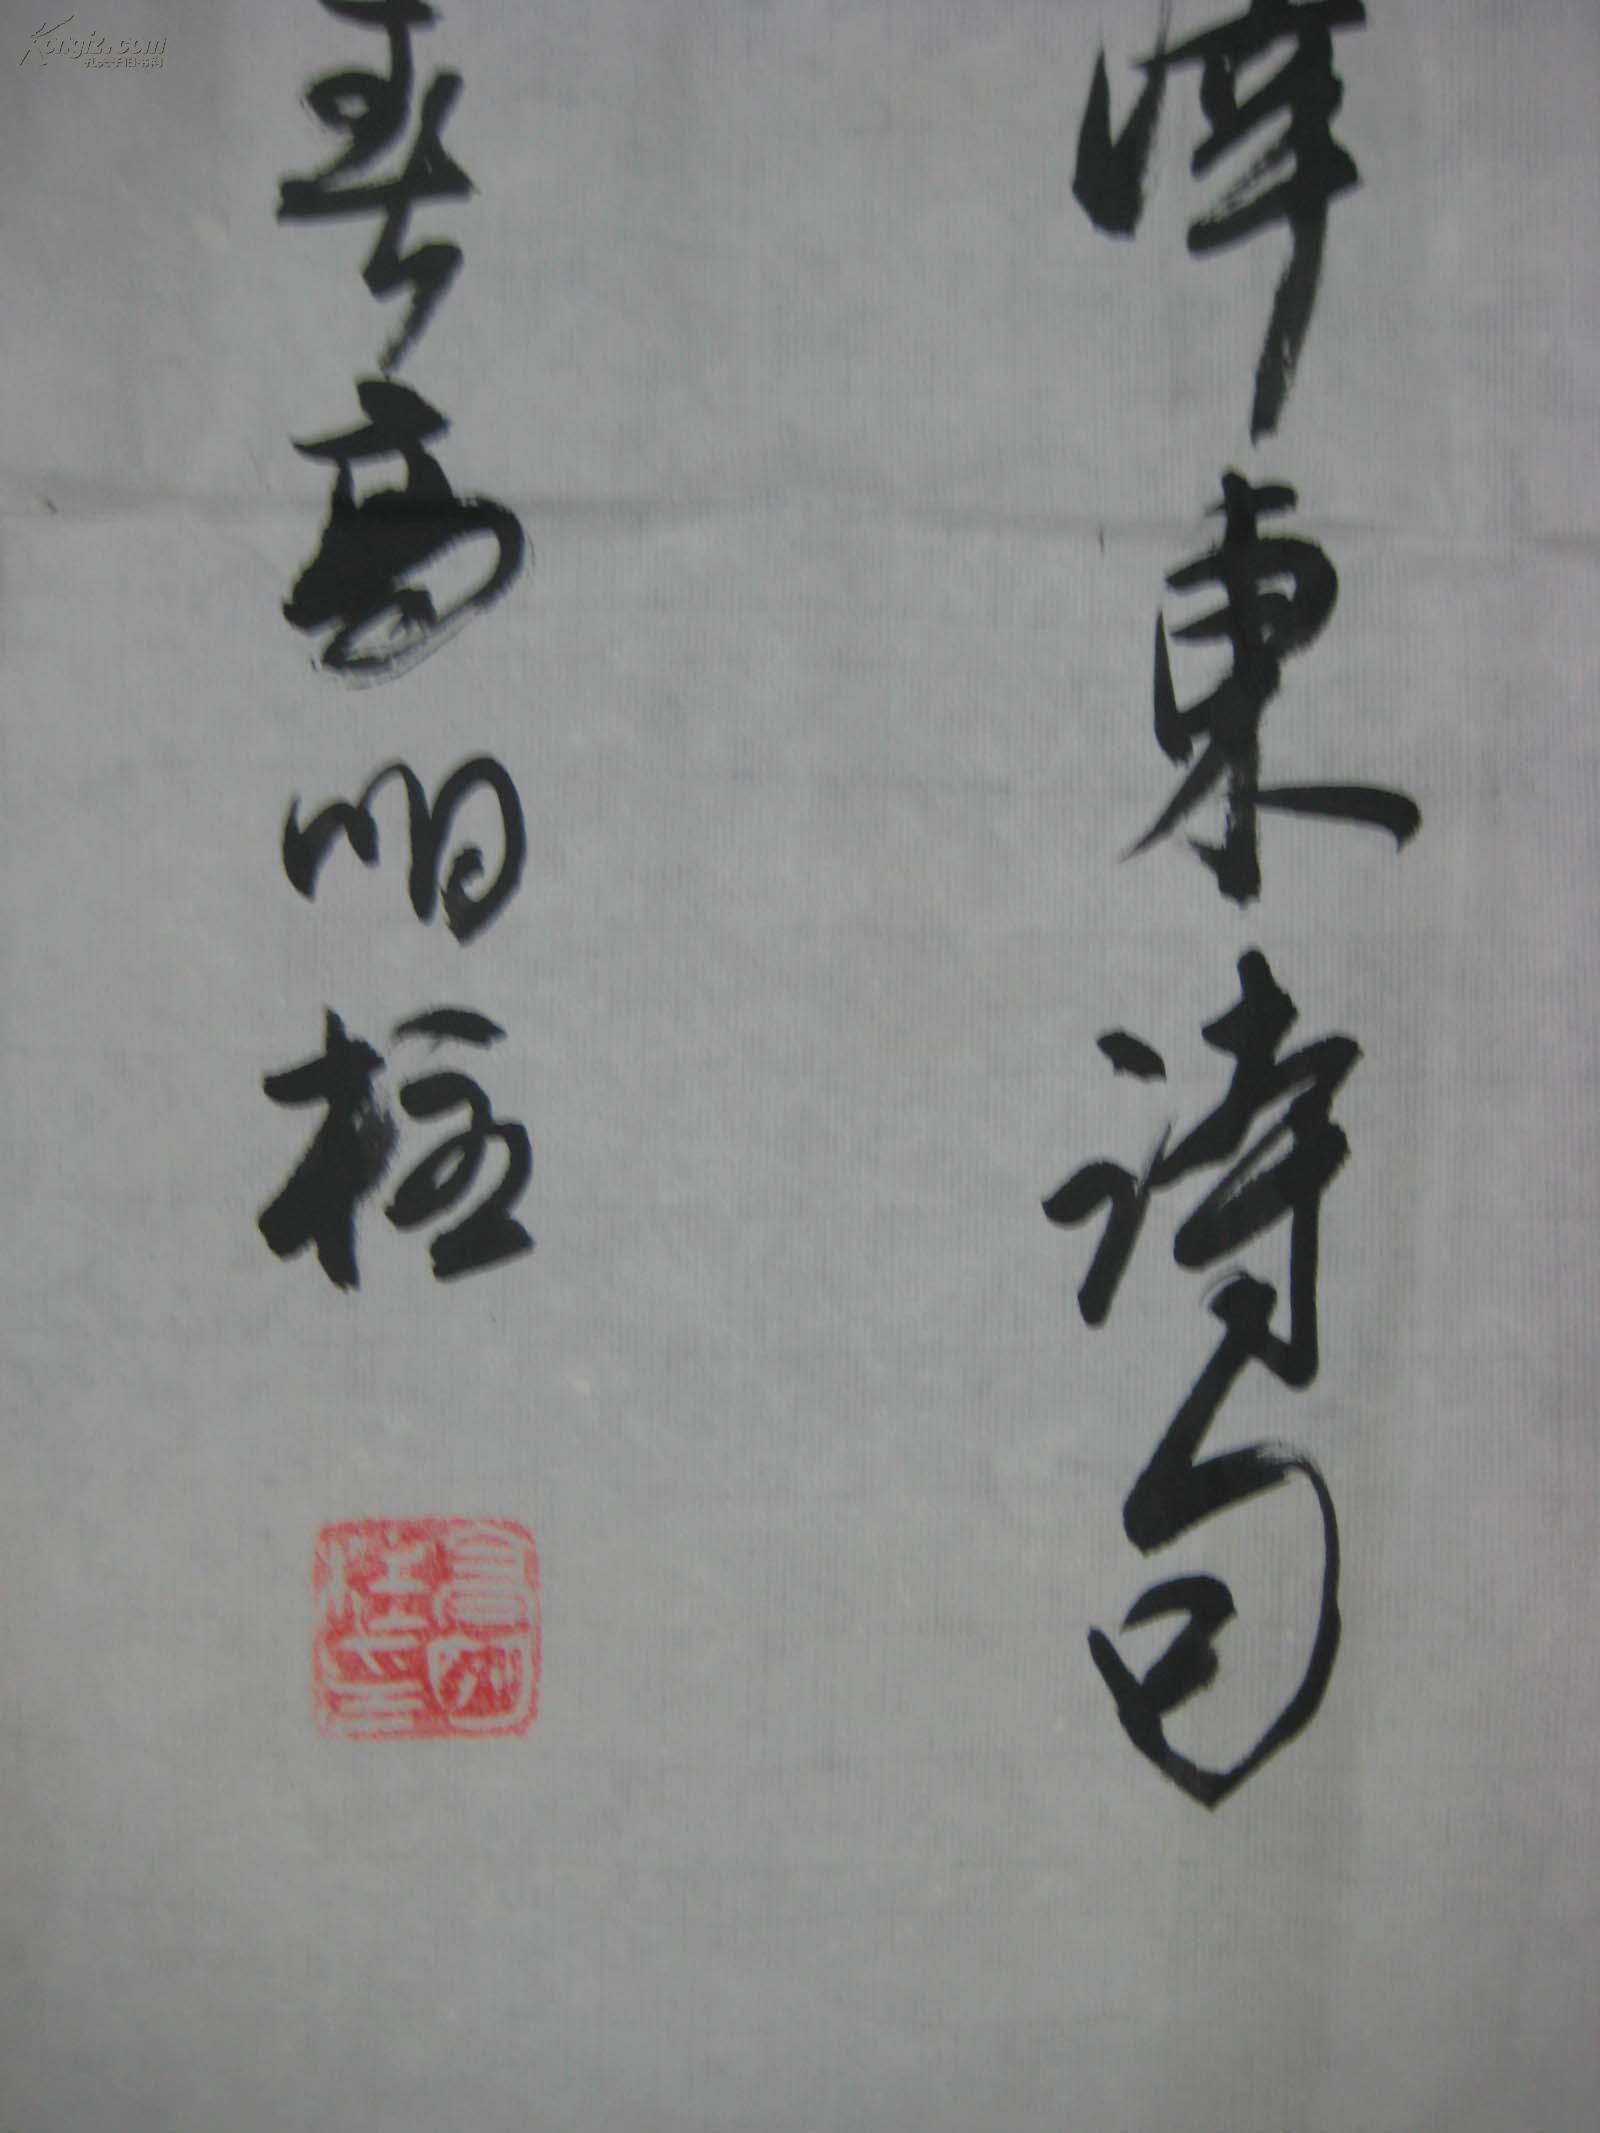 Kongfz.com
孔夫子旧书网
澤東詩句
高明柱
高明柱印